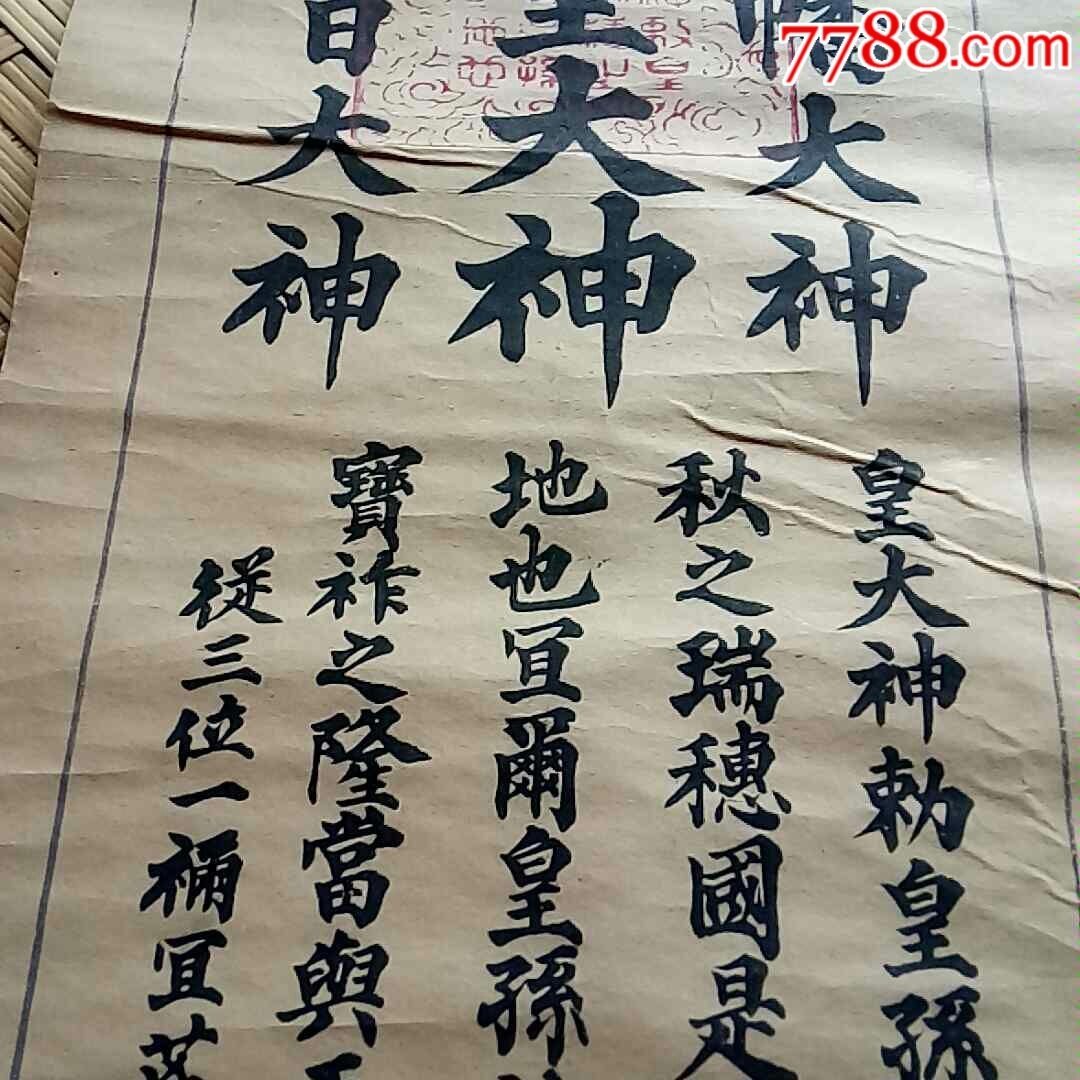 7788.com
大神
大神
日大神
皇大神勅皇孫
秋之瑞穗國是
地也冝爾皇孫
寶祚之隆當與
従三位一禰冝